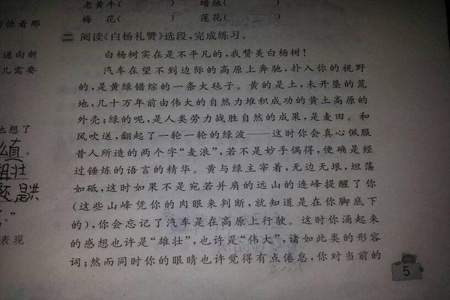 老黄牛(　　)　蜡烛(　　)
梅　花(　　)　莲花(　　)
二 阅读《白杨礼赞》选段,完成练习。
白杨树实在是不平凡的,我赞美白杨树!
汽车在望不到边际的高原上奔驰,扑入你的视野
的,是黄绿错综的一条大毯子。黄的是土,未开垦的荒
地,几十万年前由伟大的自然力堆积成功的黄土高原的
外壳;绿的呢,是人类劳力战胜自然的成果,是麦田。和
风吹送,翻起了一轮一轮的绿波——这时你会真心佩服
昔人所造的两个字“麦浪”,若不是妙手偶得,便确是经
过锤炼的语言的精华。黄与绿主宰着,无边无垠,坦荡
如砥,这时如果不是宛若并肩的远山的连峰提醒了你
(这些山峰凭你的肉眼来判断,就知道是在你脚底下
的),你会忘记了汽车是在高原上行驶。这时你涌起来
的感想也许是“雄壮”,也许是“伟大”,诸如此类的形容
词;然而同时你的眼睛也许觉得有点倦怠,你对当前的
5
儿需要
表现